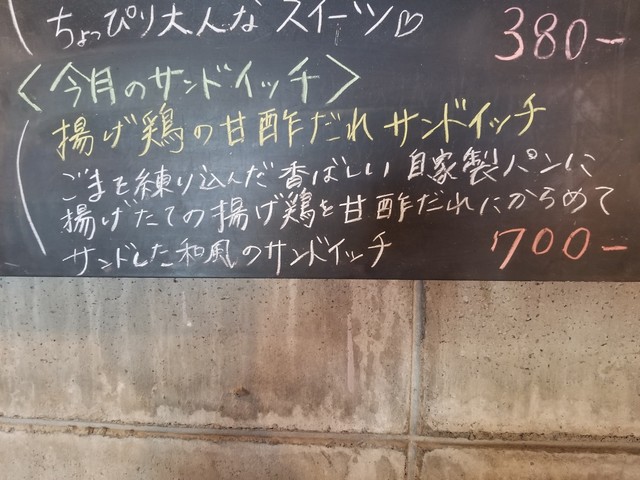 ちょっぴり大人な スイーツ♡ 380-
<今月のサンドイッチ>
揚げ鶏の甘酢だれ サンドイッチ
ごまを練り込んだ香ばしい 自家製パンに
揚げたての揚げ鶏を甘酢だれにからめて
サンドした和風のサンドイッチ 700-